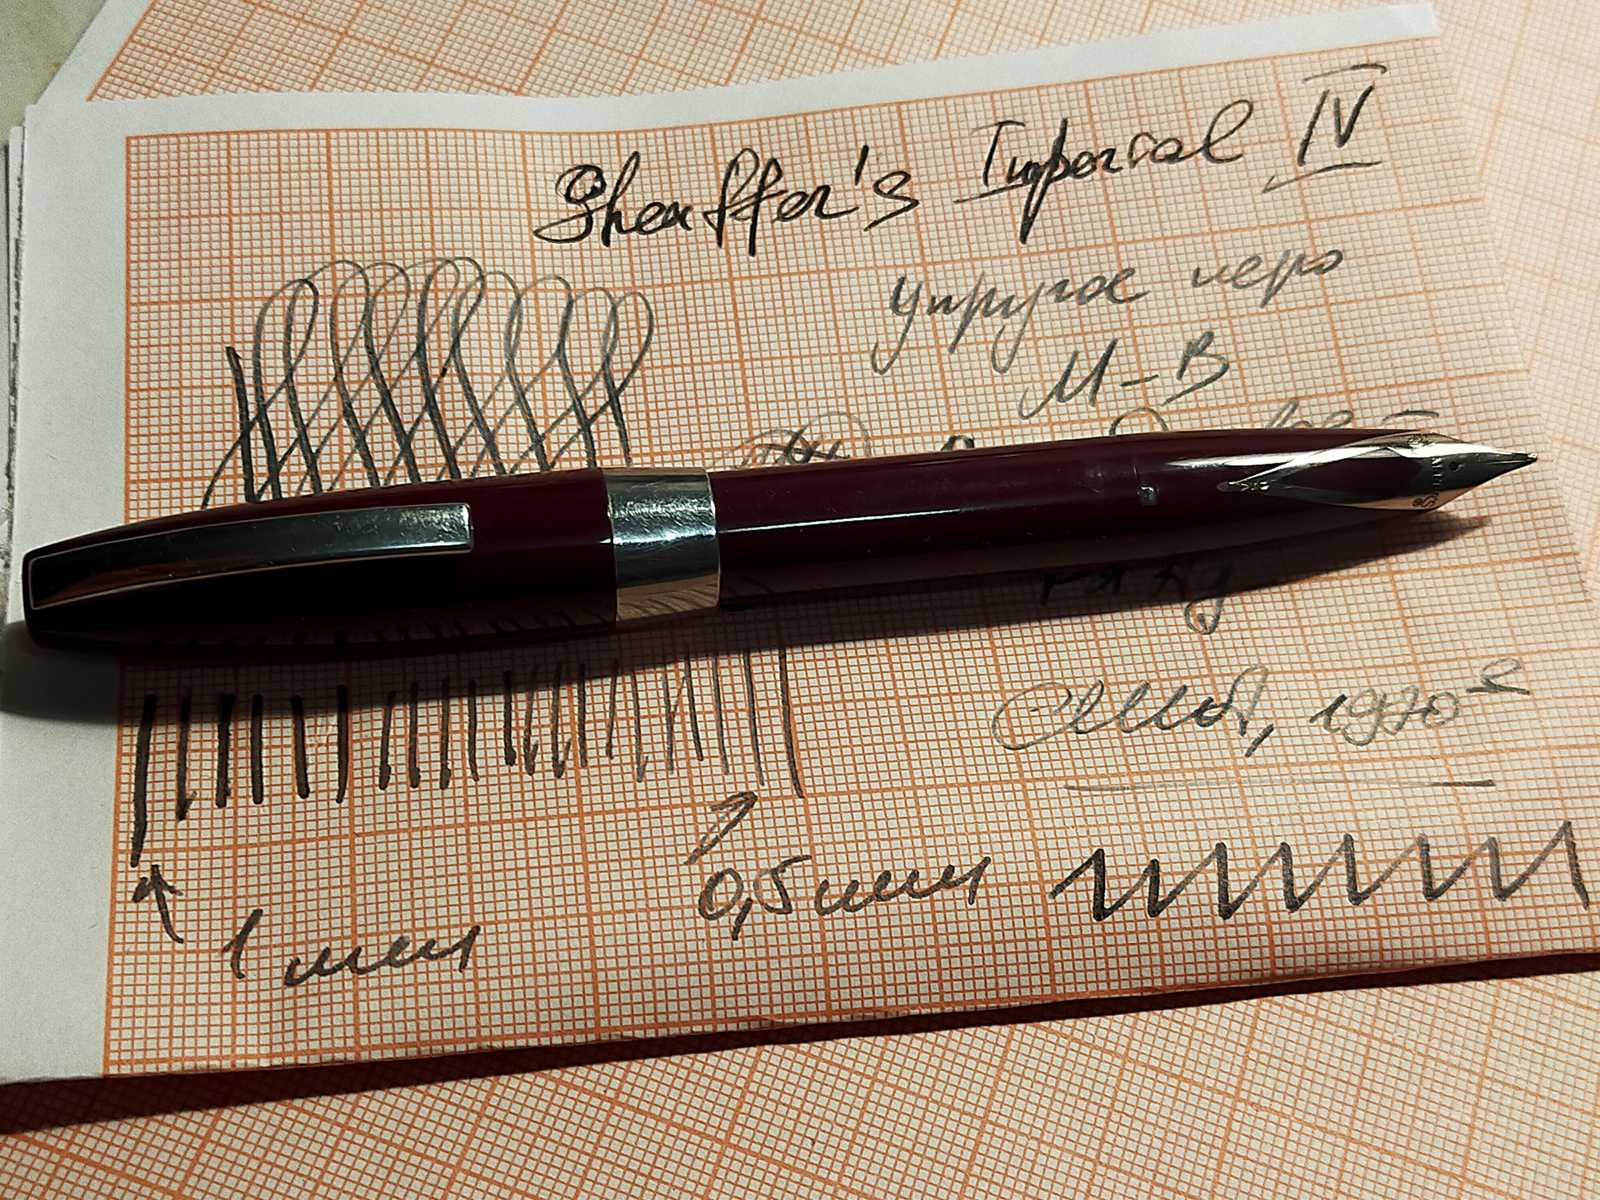 Sheaffer's Imperial IV
упругое перо
M-B
США, 1970е
0,5 мм
1 мм